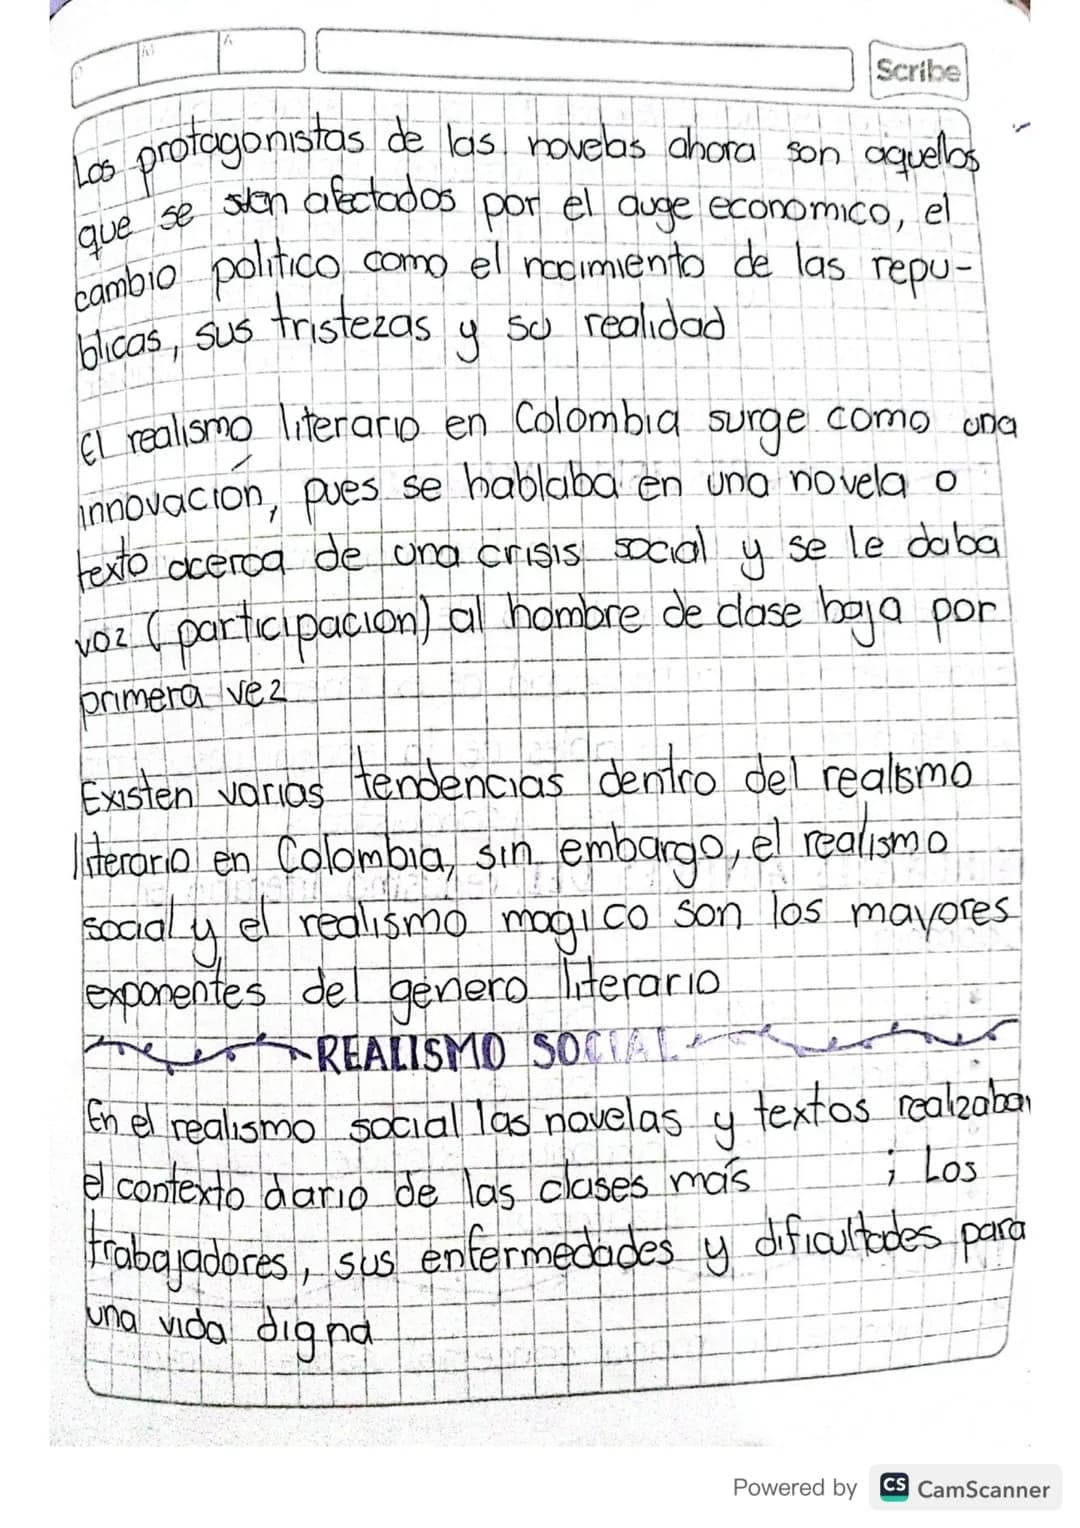 Scribe
Los protagonistas de las novelas ahora son aquellos
que se sien afectados por el auge economico, el
cambio politico como el nacimiento de las repu-
blicas, sus tristezas y su realidad
El realismo literario en Colombia surge como una
innovación, pues se hablaba en una novela o
texto acerca de una crisis social y se le daba
voz (participacion) al hombre de clase baja por
primera vez
Existen varias tendencias dentro del realismo
literario en Colombia, sin embargo, el realismo
social y el realismo magico son los mayores
exponentes del genero literario
REALISMO SOCIAL
En el realismo social las novelas y textos realizaban
el contexto dario de las clases más ; Los
trabajadores, sus enfermedades y dificultades para
una vida digna
Powered by CS CamScanner